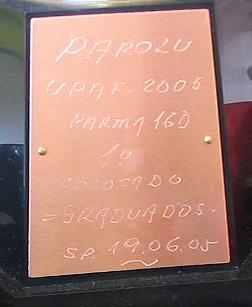 PAROLU
UPAF-2005
PARMA 16D
1º
COLOCADO
=GRADUADOS-
SP. 19.06.05